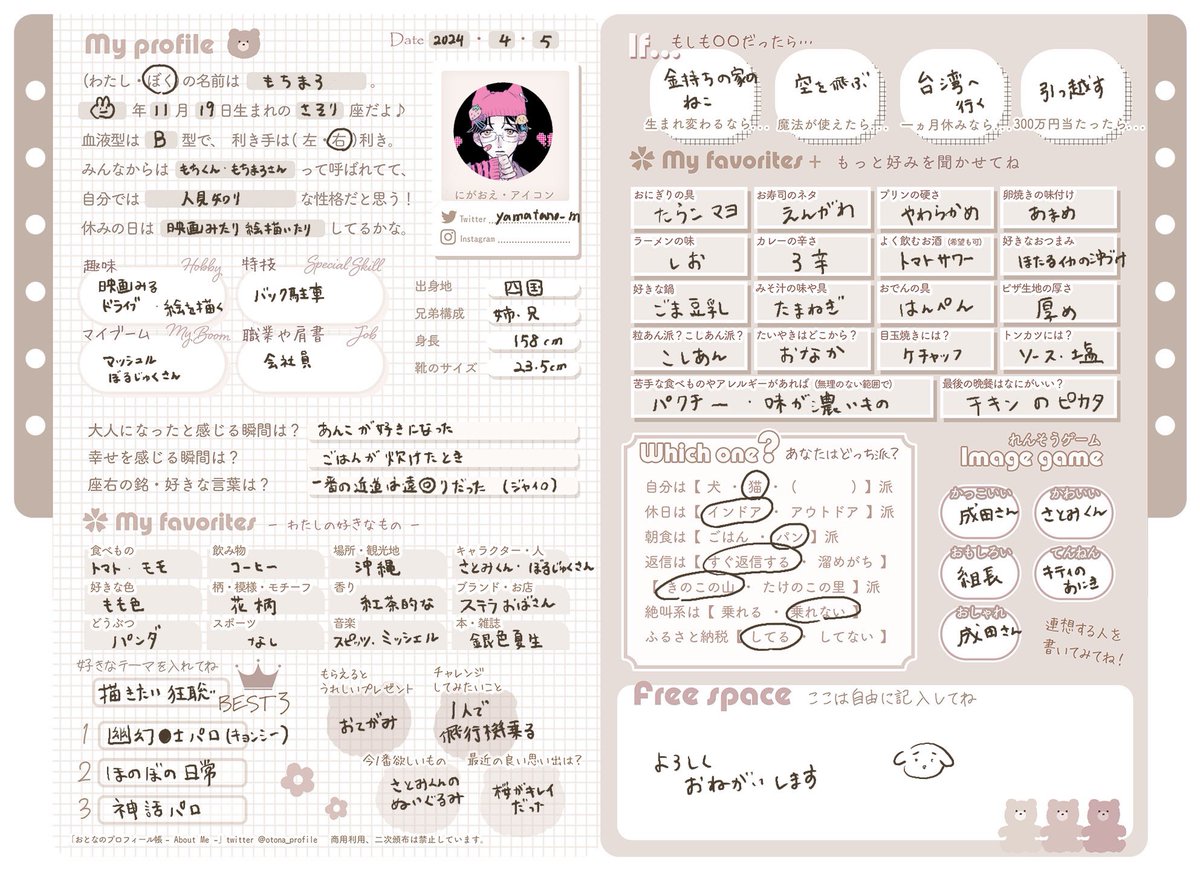 My profile
Date 2024・4・5
(わたし・ぼく)の名前は もちまろ 。
年 11 月 19 日生まれの さそり 座だよ♪
血液型は B 型で、 利き手は( 左・右 )利き。
みんなからは もちくん・もちまるさん って呼ばれてて、
自分では 人見知り な性格だと思う！
休みの日は 映画みたり絵描いたり してるかな。
にがおえ・アイコン
Twitter yamatano_m
Instagram
趣味 Hobby
映画みる
ドライブ ・絵を描く
特技 Special Skill
バック駐車
マイブーム My Boom
マッシュル
ぼるじゅくさん
職業や肩書 Job
会社員
出身地 四国
兄弟構成 姉、兄
身長 158cm
靴のサイズ 23.5cm
大人になったと感じる瞬間は？ あんこが好きになった
幸せを感じる瞬間は？ ごはんが炊けたとき
座右の銘・好きな言葉は？ 一番の近道は遠回りだった (ジャイロ)
My favorites － わたしの好きなもの －
食べもの トマト・モモ
飲み物 コーヒー
場所・観光地 沖縄
キャラクター・人 さとみくん・ぼるじゅくさん
好きな色 もも色
柄・模様・モチーフ 花柄
香り 紅茶的な
ブランド・お店 ステラおばさん
どうぶつ パンダ
スポーツ なし
音楽 スピッツ、ミッシェル
本・雑誌 銀色夏生
好きなテーマを入れてね
描きたい狂聡
BEST3
1 幽幻●士パロ(キョンシー)
2 ほのぼの日常
3 神話パロ
もらえると
うれしいプレゼント
おてがみ
チャレンジ
してみたいこと
1人で
飛行機乗る
今1番欲しいもの
さとみくんの
ぬいぐるみ
最近の良い思い出は？
桜がキレイ
だった
「おとなのプロフィール帳 - About Me -」twitter @otona_profile 商用利用、二次頒布は禁止しています。
If... もしも〇〇だったら…
金持ちの家の
ねこ
生まれ変わるなら…
空を飛ぶ
魔法が使えたら…
台湾へ
行く
一ヵ月休みなら…
引っ越す
300万円当たったら…
My favorites + もっと好みを聞かせてね
おにぎりの具 たらこマヨ
お寿司のネタ えんがわ
プリンの硬さ やわらかめ
卵焼きの味付け あまめ
ラーメンの味 しお
カレーの辛さ 3辛
よく飲むお酒 (希望も可) トマトサワー
好きなおつまみ ほたるイカの沖づけ
好きな鍋 ごま豆乳
みそ汁の味や具 たまねぎ
おでんの具 はんぺん
ピザ生地の厚さ 厚め
粒あん派？こしあん派？ こしあん
たいやきはどこから？ おなか
目玉焼きには？ ケチャップ
トンカツには？ ソース・塩
苦手な食べものやアレルギーがあれば (無理のない範囲で) パクチー・味が濃いもの
最後の晩餐はなにがいい？ チキンのピカタ
Which one? あなたはどっち派？
自分は【 犬 ・ 猫 ・ ( ) 】派
休日は【 インドア ・ アウトドア 】派
朝食は【 ごはん ・ パン 】派
返信は【 すぐ返信する ・ 溜めがち 】
【 きのこの山 ・ たけのこの里 】派
絶叫系は【 乗れる ・ 乗れない 】
ふるさと納税【 してる ・ してない 】
れんそうゲーム
Image game
かっこいい 成田さん
かわいい さとみくん
おもしろい 組長
てんねん キティの
あにき
おしゃれ 成田さん
連想する人を
書いてみてね！
Free space ここは自由に記入してね
よろしく
おねがいします